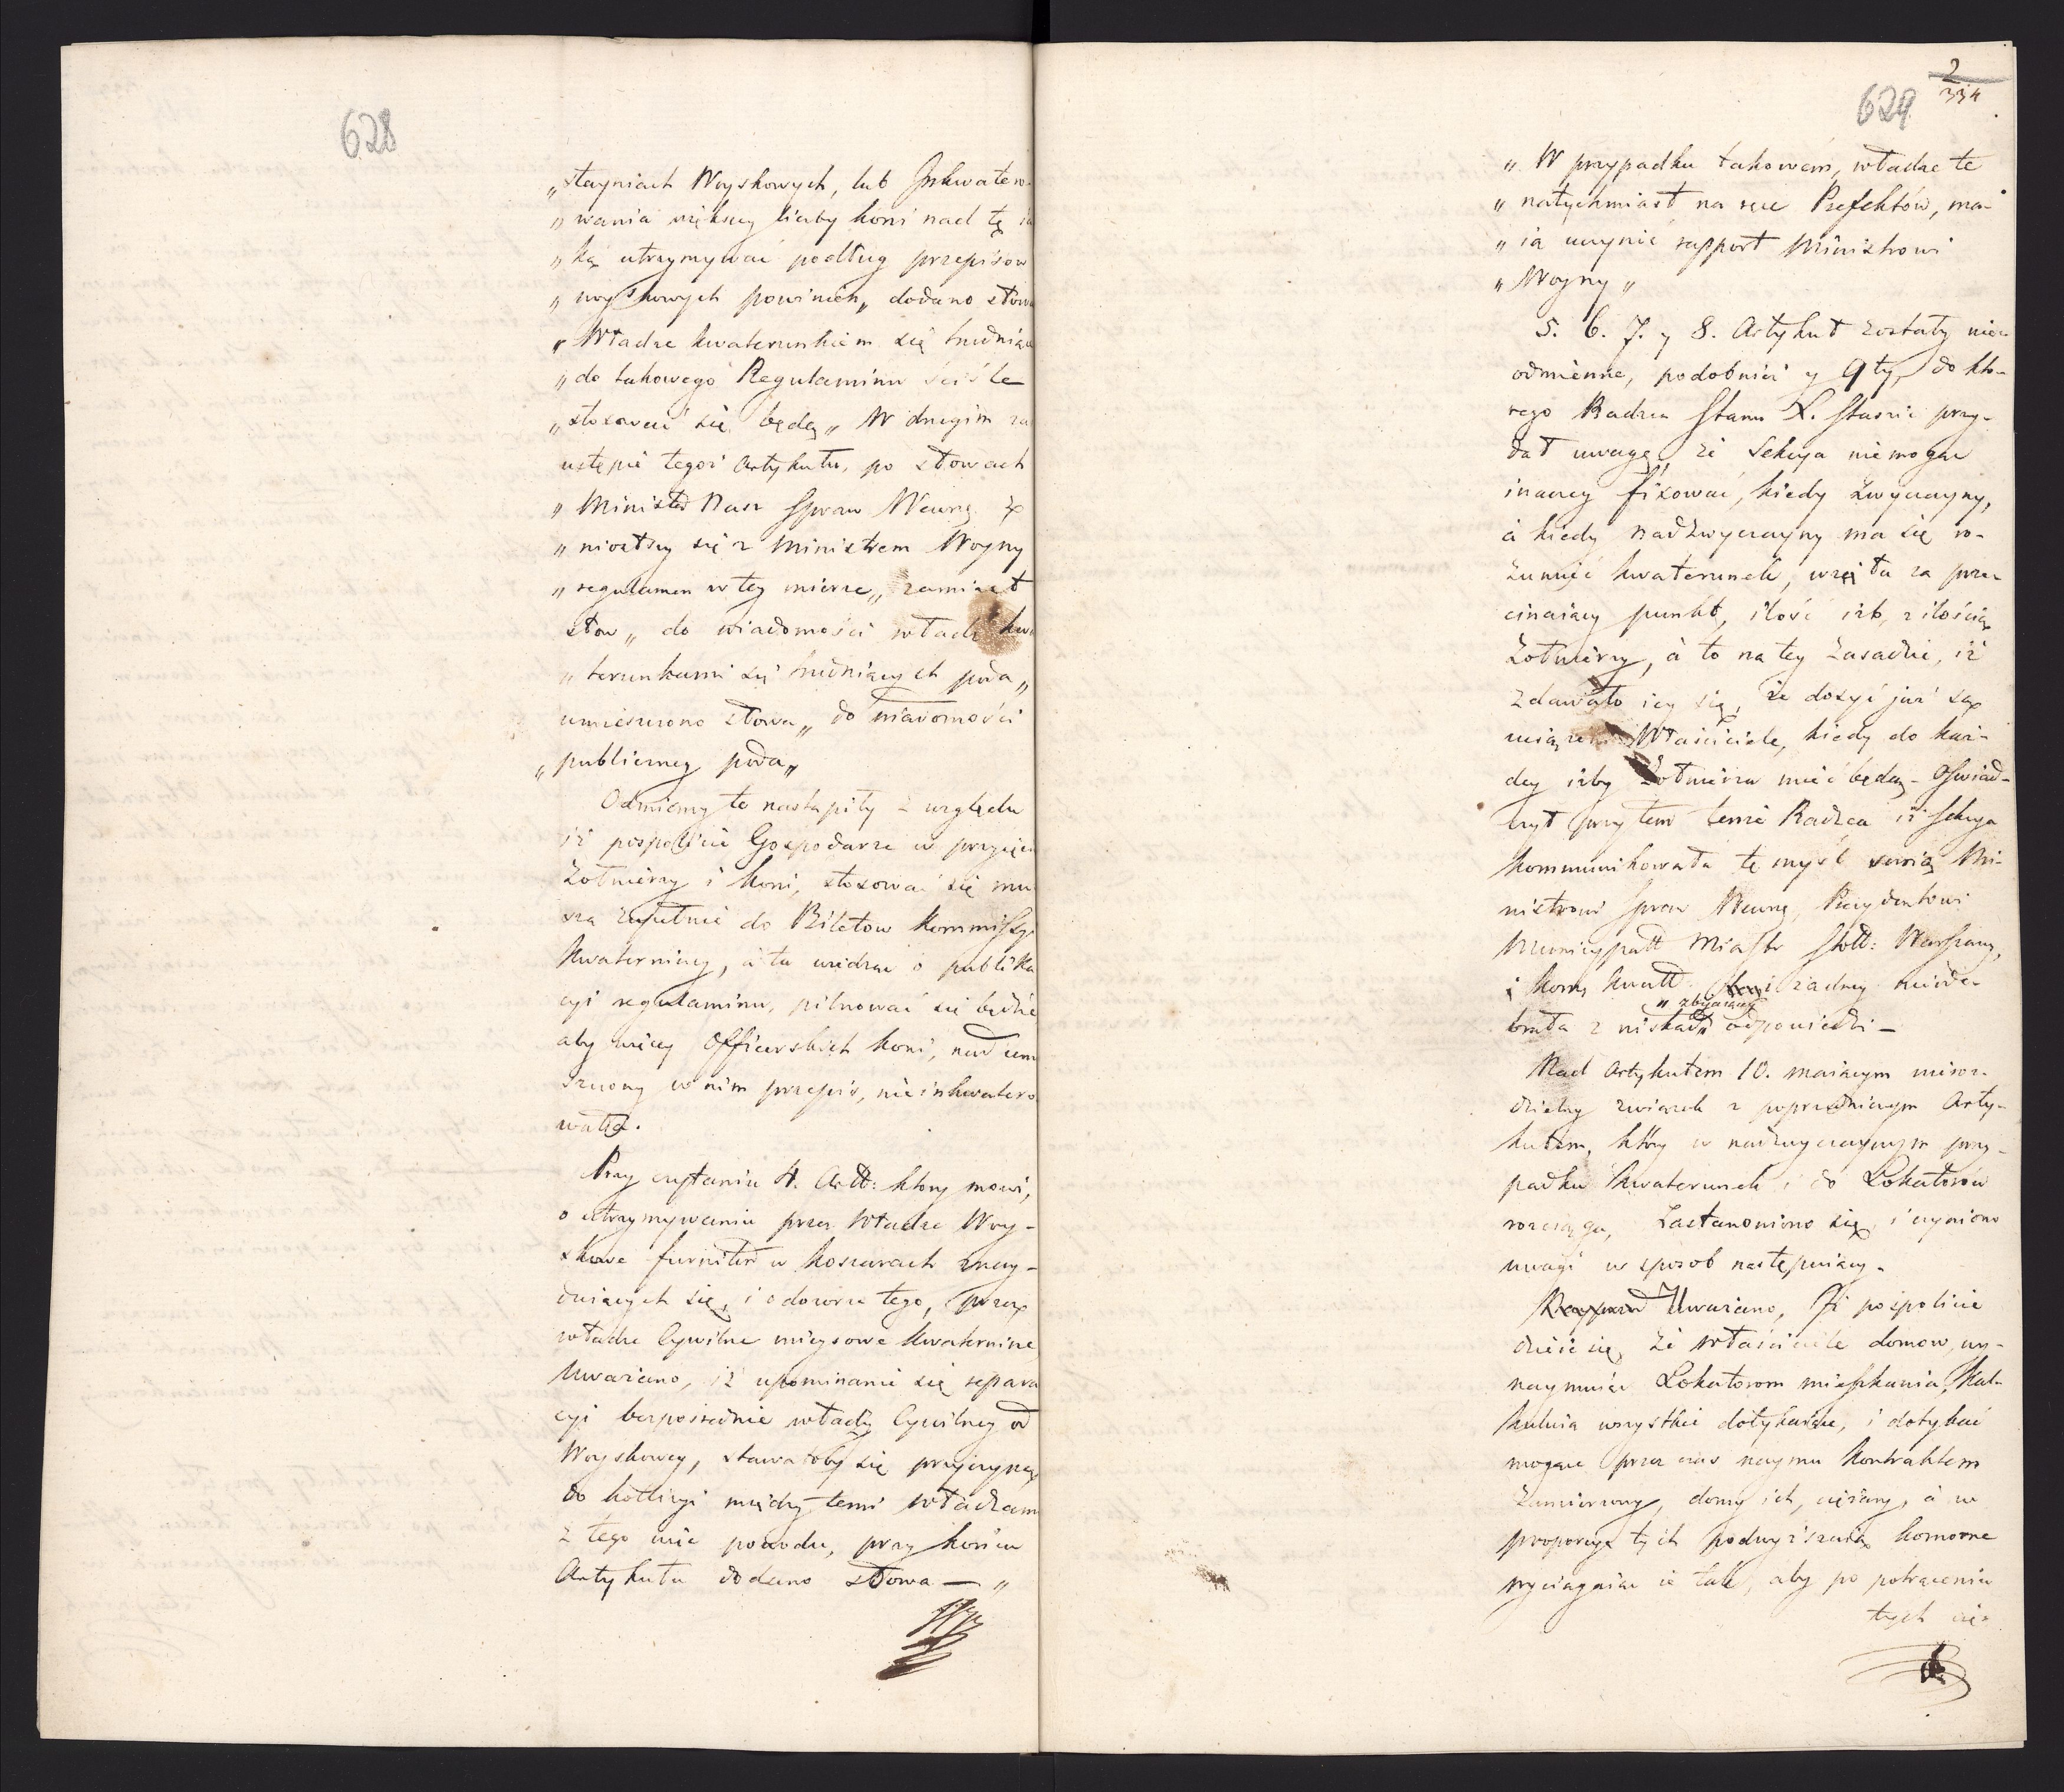 628
„stayniach Woyskowych, lub Inkwatero-
„wania większey liczby koni nad tę ia
„ką utrzymywać podług przepisow
„woyskowych powinien„ dodano słowa
„Władze kwaterunkiem się trudniące
„do takowego Regulaminu ściśle
„stosować się będą„ W drugim za
ustępie tegoż Artykułu, po słowach
„Minister Nasz Spraw Wewnę: z
„niosłszy się z Ministrem Woyny
„regulamen w tey mierze„ zamiast
słow „do wiadomości władz kwa
„terunkami się trudniących poda„
umieszczono słowa „do wiadomości
„publiczney poda„
Odmiany te nastąpiły z względu
iż pospolicie Gospodarze w przyięciu
Żołnierzy i koni, stosować się mu
szą zupełnie do Biletow Kommissyi
Kwaterniczey, a ta wiedząc o publika
cyi regulaminu, pilnować się będzie
aby więcey Officerskich koni, nad umie
szczony w nim przepis, nie inkwatero
wała.
Przy czytaniu 4. Artt: ktory mowi,
o utrzymywaniu przez Władze Woy-
skowe furnitur w koszarach znay-
duiących się, i o dozorze tego, przez
władze Cywilne mieysowe kwaternicze
Uważano, iż upominanie się repara
cyi bezpośrednie władzy Cywilney od
Woyskowey, stawałoby się przyczyną
do kollizyi między temi władzami
z tego więc powodu, przy końcu
Artykułu dodano słowa — „
2
334
629
„W przypadku takowém, władze te
„natychmiast na ręce Prefektów, ma-
„ią uczynić rapport Ministrowi
„Woyny„
5. 6. 7. y 8. Artykuł zostały nie-
odmienne, podobnież y 9ty, do któ-
rego Radca Stanu X. Staszic przy-
dał uwagę, że Sekcya niemogąc
inaczey fixować, kiedy zwyczayny,
a kiedy nadzwyczayny ma się ro-
zumieć kwaterunek, wzięła za prze-
cinaiący punkt, ilość izb, z ilością
Żołnierzy, a to na tey zasadzie, iż
zdawało iey się, że dosyć już są
uciążeni Właściciele, kiedy do każ-
dey izby Żołnierza mieć będą - Oświad-
czył przytem tenże Radzca iż Sekcya
kommunikowała tę myśl swoią Mi-
nistrowi Spraw Wewnę, Prezydentowi
Municypall Miasta Stołł: Warszawy,
i Kom: kwatt. i żadney nieode-
„zbijaiącey
brała z nikąd„ odpowiedzi —
Nad Artykułem 10. maiącym nieroz-
dzielny związek z poprzedniczym Arty-
kułem, który w nadzwyczaynym przy-
padku kwaterunek i do Lokatorów
rozciąga, zastanowiono się, i czyniono
uwagi w sposob następuiący.
Uważano, Iż pospolicie
dzieie się, że właściciele domow, wy-
naymuiąc Lokatorom mieszkania, kal-
kuluią wszystkie dotykaiące, i dotykać
mogące przez czas naymu kontraktem
zamierzony, domy ich, ciężary, a w
proporcyą tych podwyższaią komorne
wyciągaiąc ie tak, aby po potrąceniu
tych cię-